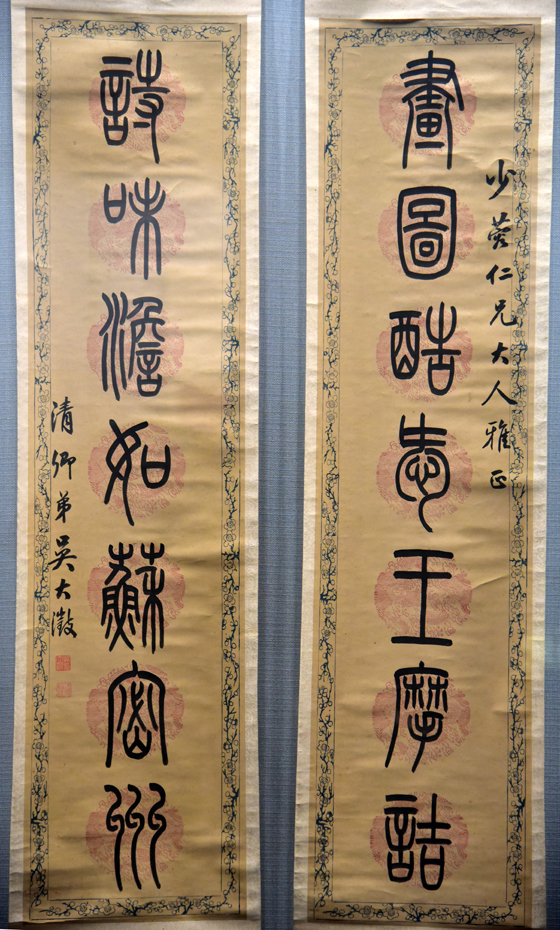 少蓉仁兄大人雅正
畫圖酷愛王摩詰
詩味澹如蘇密州
清卿弟吳大澂